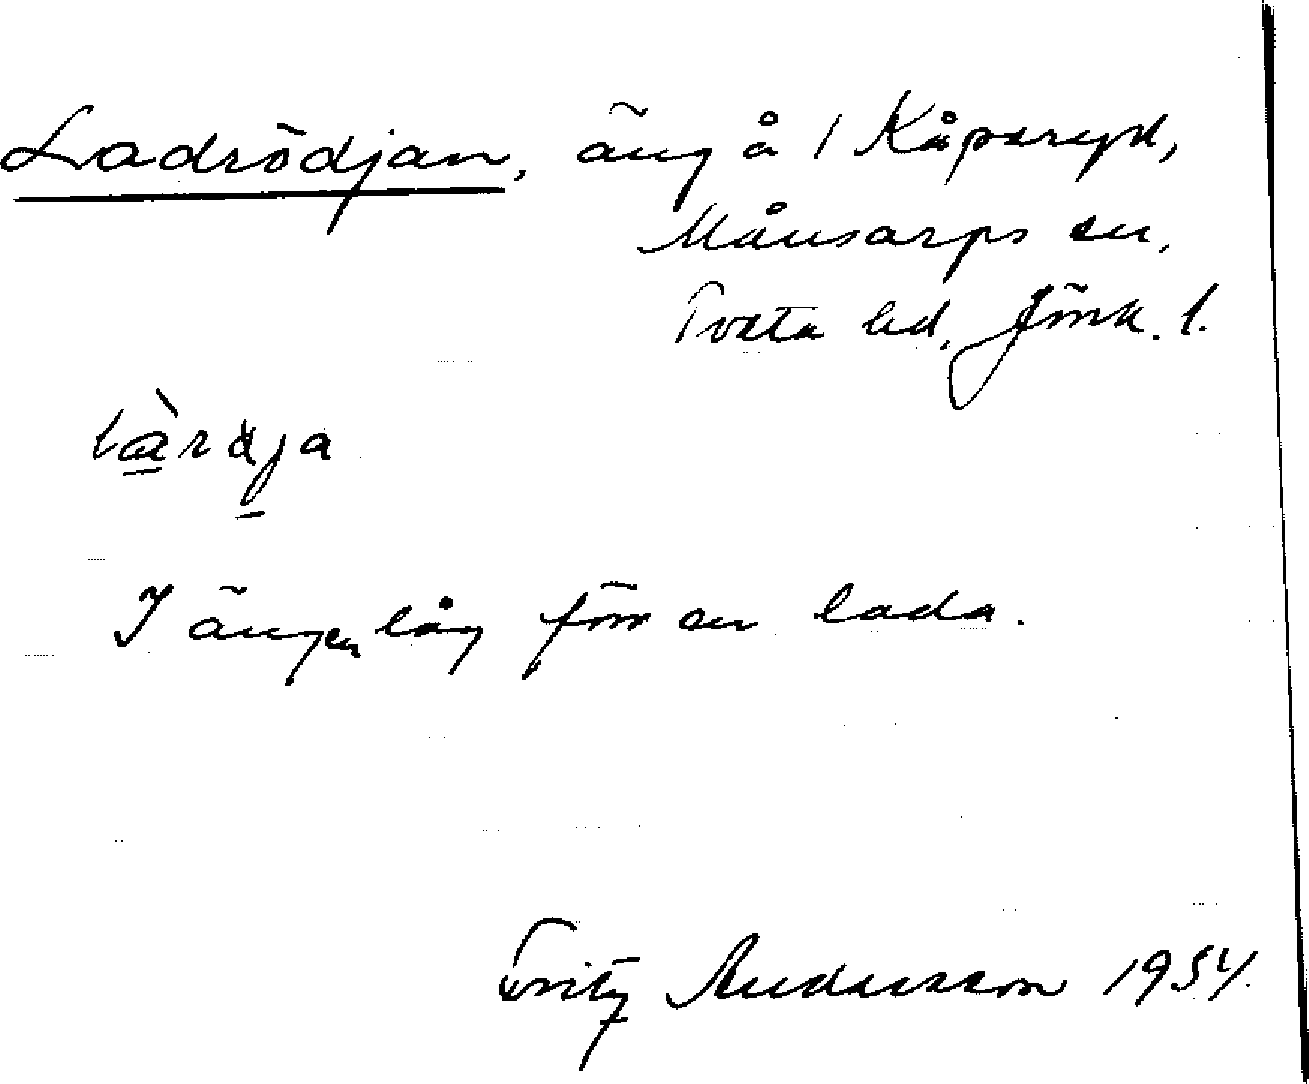 Ladrödjan, äng å 1 Kåperyd,
Månsarps sn,
Tveta hd, Jönk. l.
I ängen låg förr en lada.
Fritz Andersson 1954.